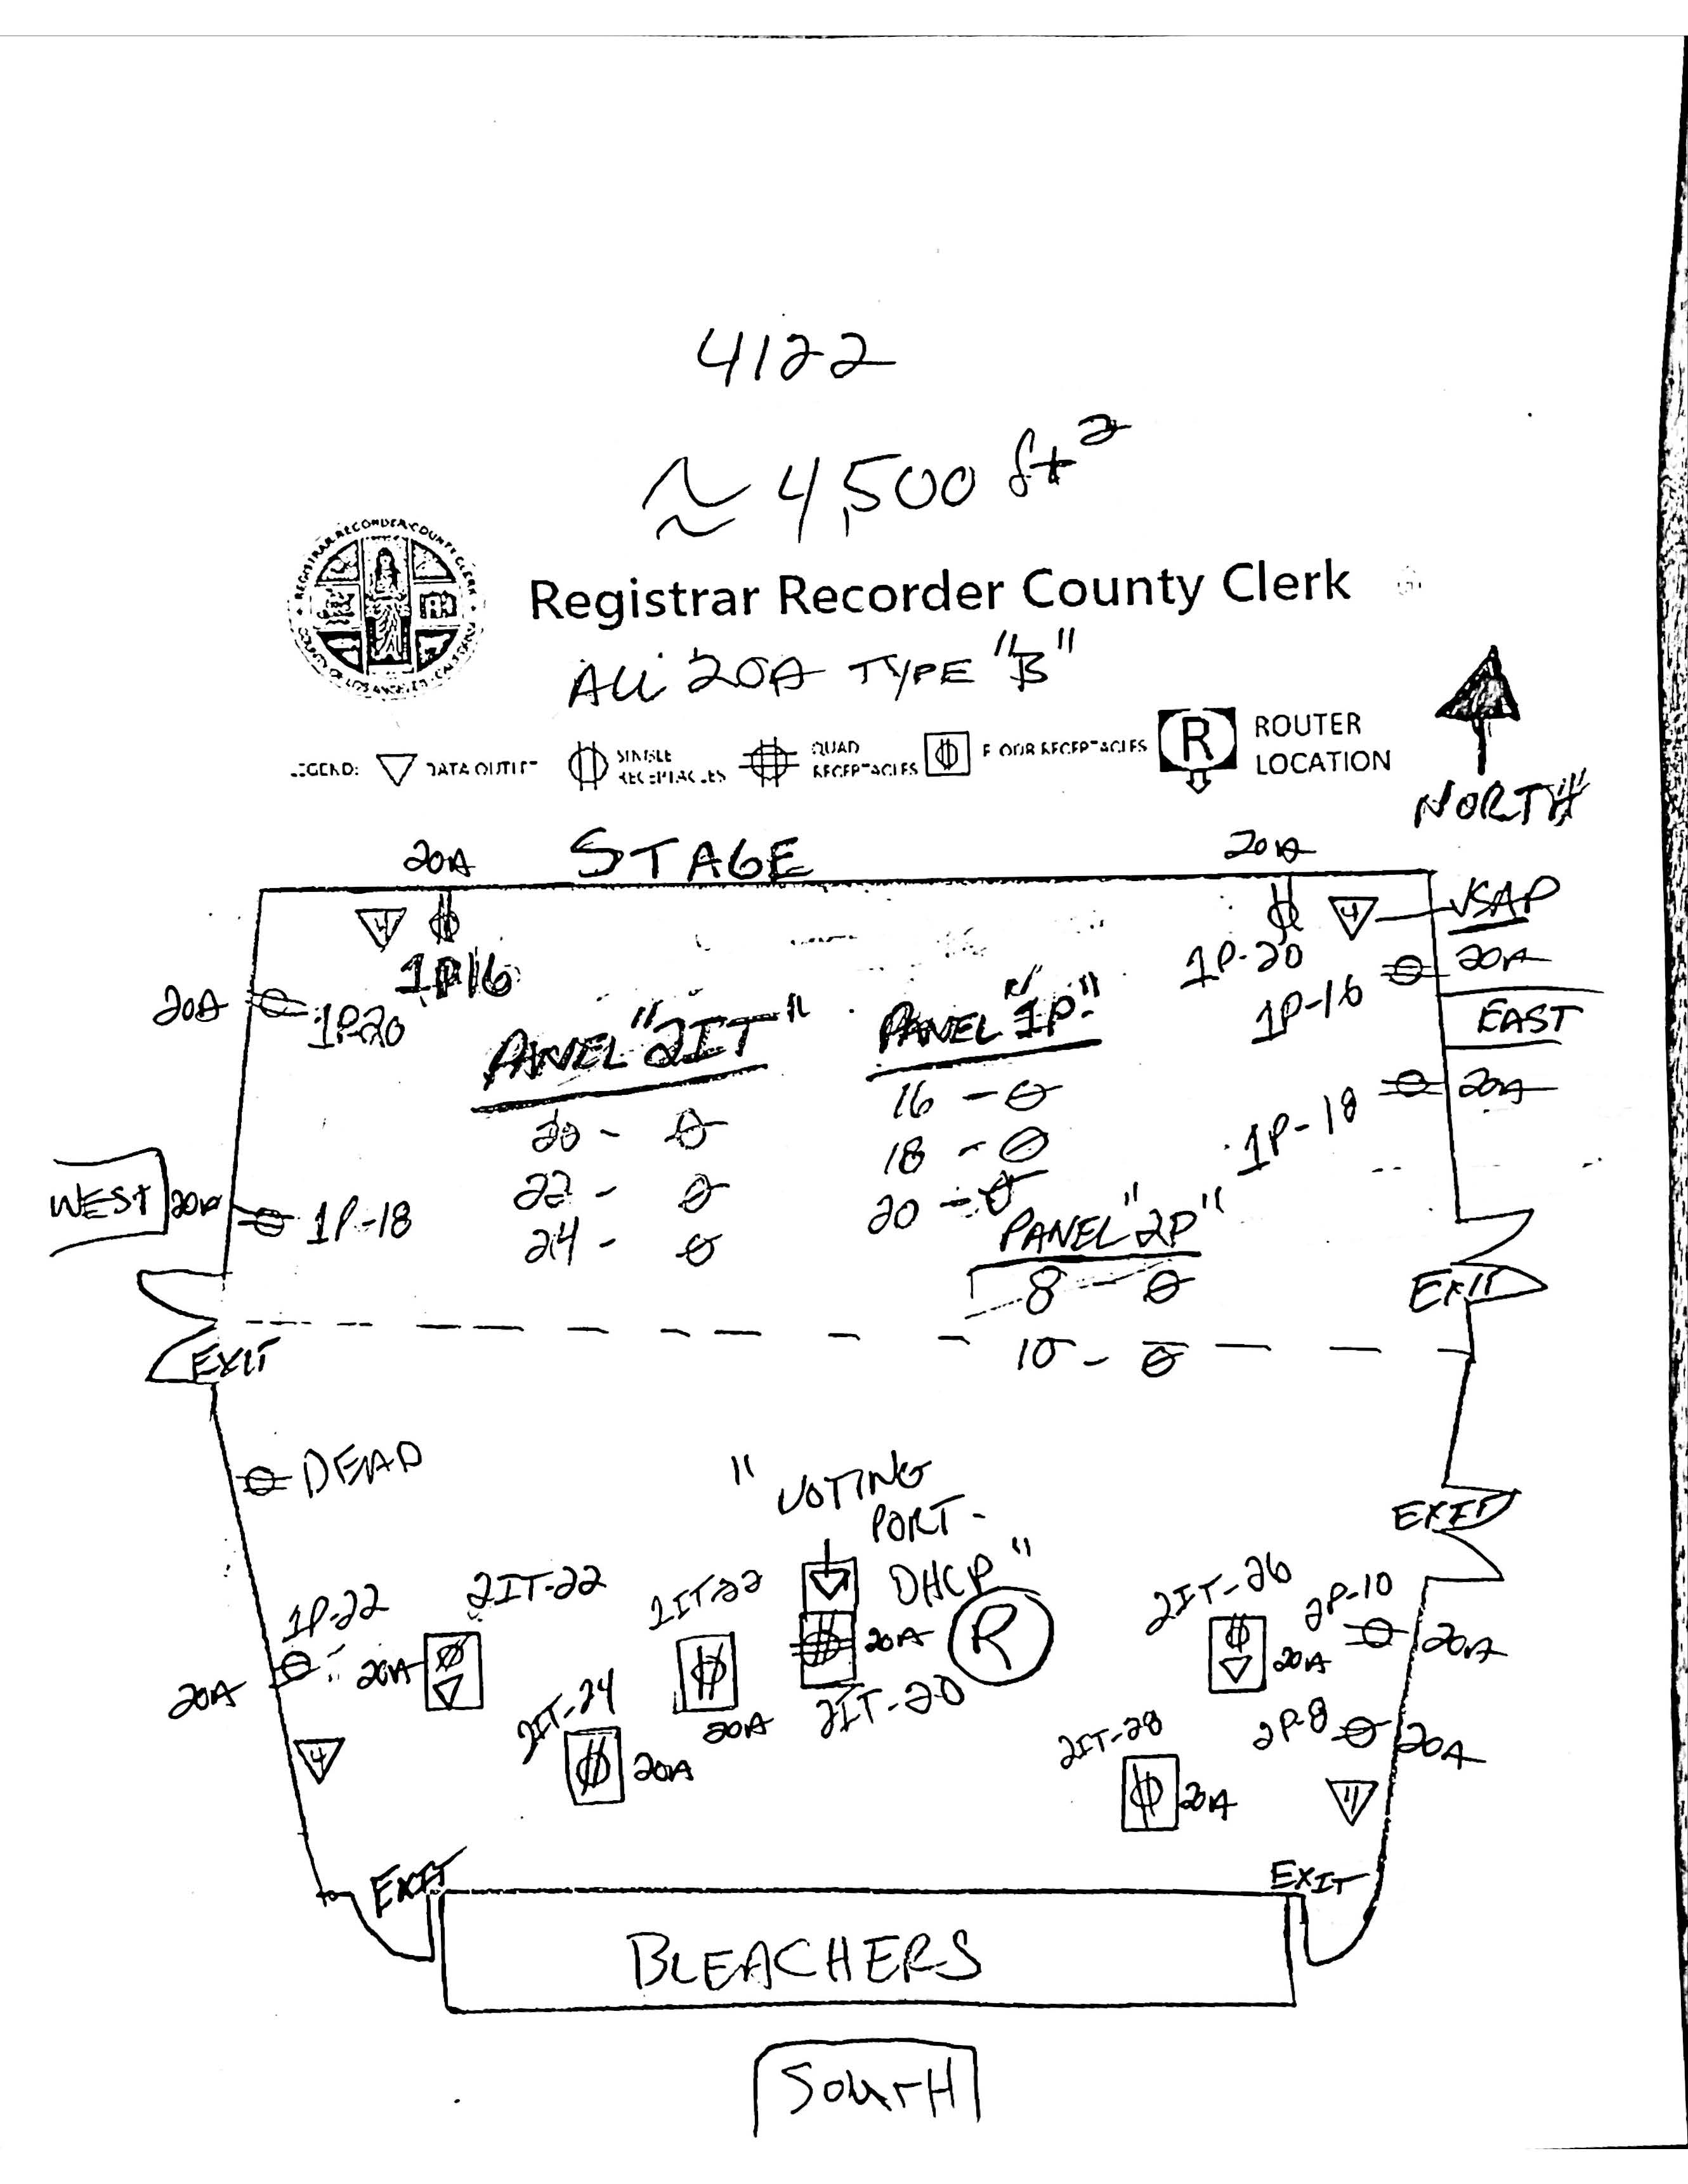 4122
≈ 4,500 ft²
REGISTRAR RECORDER COUNTY CLERK
COUNTY OF LOS ANGELES, CALIFORNIA
Registrar Recorder County Clerk
ALL 20A TYPE "B"
LEGEND: DATA OUTLET SINGLE RECEPTACLES QUAD RECEPTACLES FLOOR RECEPTACLES R ROUTER LOCATION
NORTH
20A STAGE 20A
4 4 VSAP
1P16 1P-20 20A
20A 1P-20 1P-16 EAST
PANEL "2IT" PANEL "1P"
20 - 16 - 20A
22 - 18 - 1P-18
24 - 20 -
WEST 20A 1P-18
PANEL "2P"
8 -
10 -
EXIT EXIT
DEAD
"VOTING
PORT-
DHCP"
EXIT
1P-22 2IT-22 2IT-22 2IT-26 2P-10
20A 20A 20A R 20A 20A
2IT-24 20A 2IT-20 2IT-28 2P-8 20A
4 20A 20A 11
EXIT EXIT
BLEACHERS
SOUTH